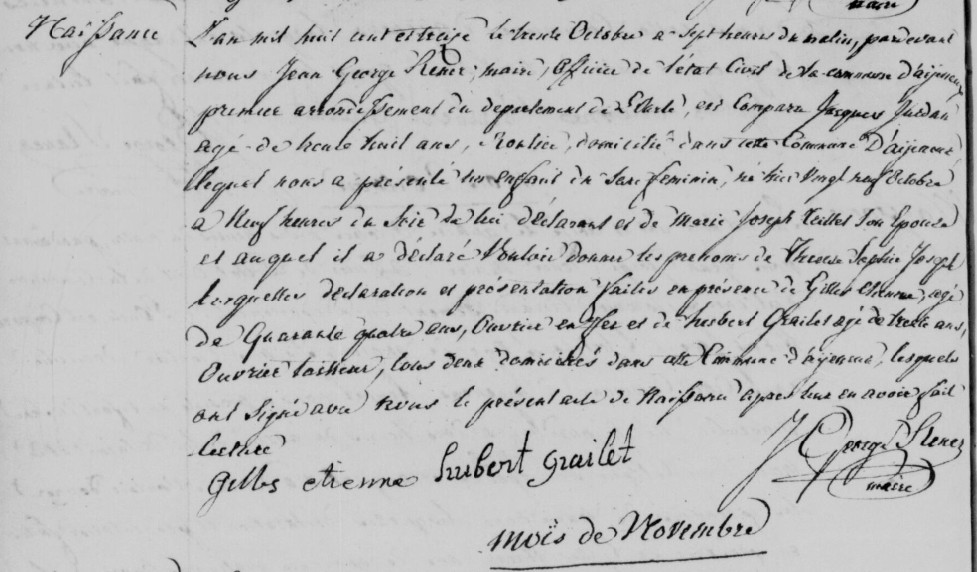 maire
Naissance
L'an mil huit cent et treize le trente Octobre a Sept heures du matin, pardevant
nous Jean George Rener, maire, Officier de l'état Civil de la commune d'aijeneux
premier arrondissement du departement de L'Ourte, est Comparu Jacques
agé de trente huit ans, domicilié dans cette Commune D'aijeneux
lequel nous a présenté un enfant du Sexe feminin, né hier Vingt neuf Octobre
a Neuf heures du Soir de lui déclarant et de Marie Joseph Son Epouse
et auquel il a déclaré Vouloir donner les prenoms de Therese Sophie Joseph
lesquelles déclaration et présentation faites en présence de Gilles etienne agé
de Quarante quatre ans, Ouvrier en fer et de hubert Grailet agé de trente ans,
Ouvrier, tous deux domiciliés dans cette Commune d'ajeneux, lesquels
ont Signé avec Nous le présent acte de Naissance apres leur en avoir fait
lecture
Gilles etienne hubert grailet J George Rener
maire
mois de Novembre